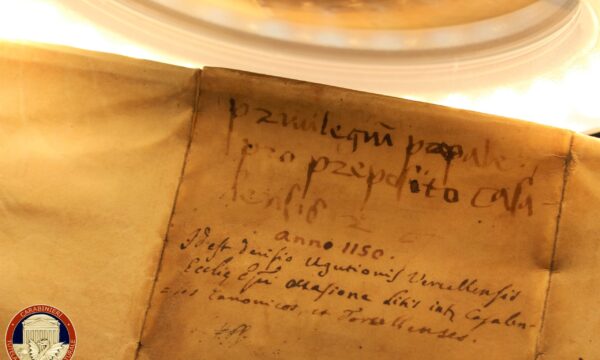 privilegiũ papale
pro preposito Casa
lensis
anno 1150.
Idest decisio Ugutionis Vercellensis
Ecclię Epi occasione litis inter Casalen-
ses Canonicos, et Torcellenses.
CARABINIERI